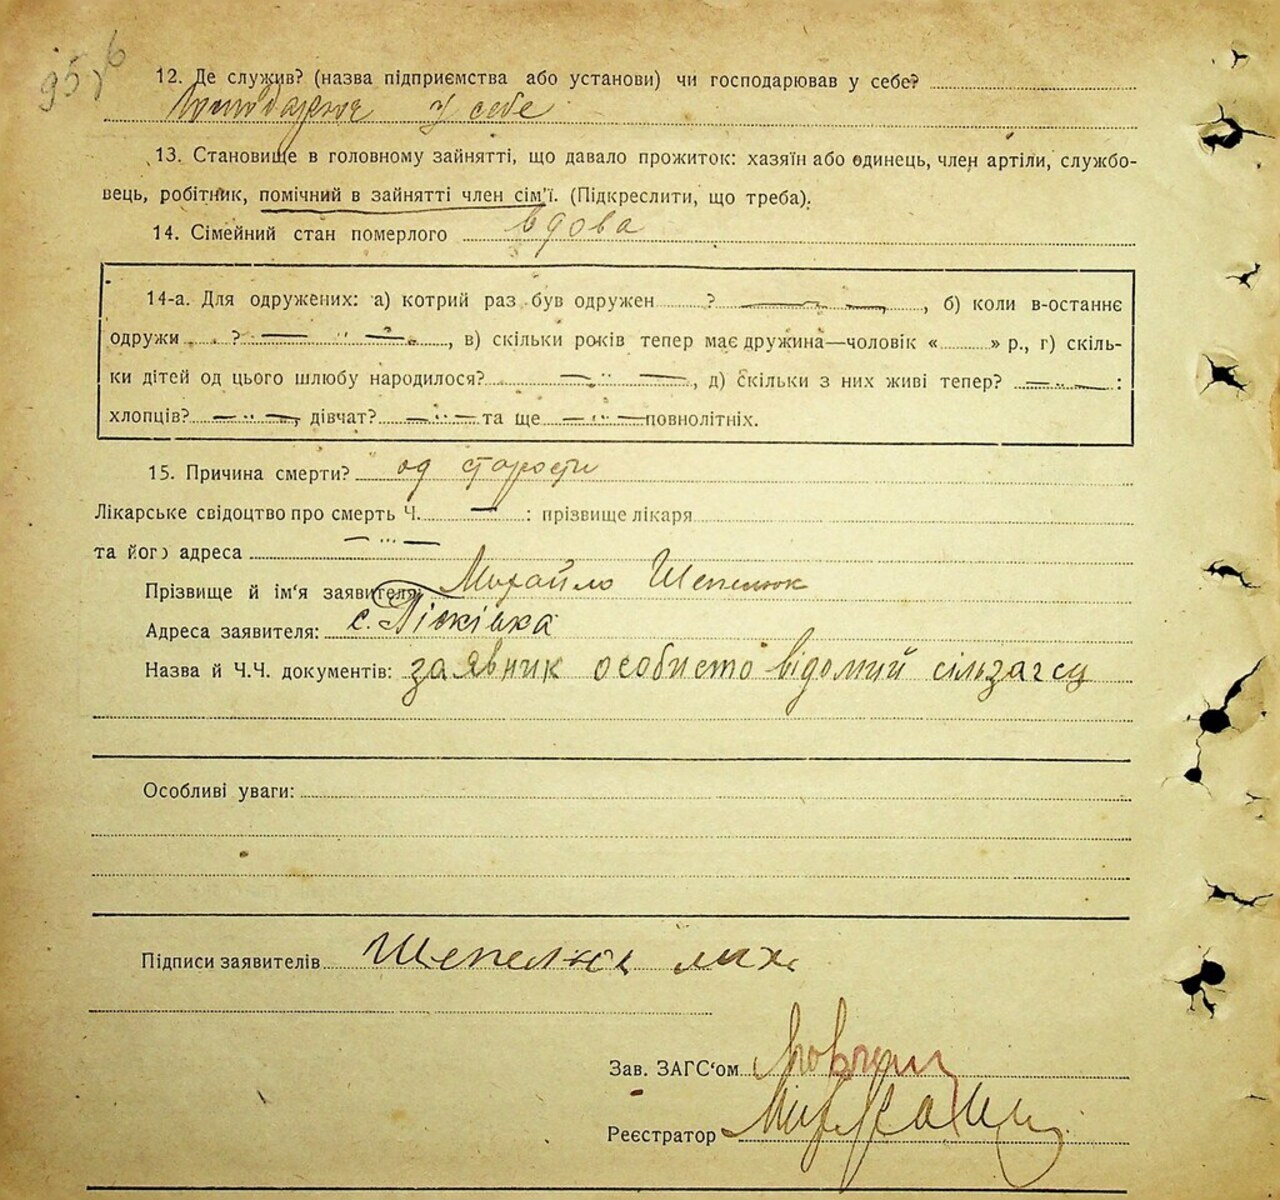 95
12. Де служив? (назва підприємства або установи) чи господарював у себе?
у себе
13. Становище в головному зайнятті, що давало прожиток: хазяїн або одинець, член артіли, службо-
вець, робітник, помічний в зайнятті член сім'ї. (Підкреслити, що треба).
14. Сімейний стан померлого вдова
14-а. Для одружених: а) котрий раз був одружен ? — , б) коли в-останнє
одружи ? — " — , в) скільки років тепер має дружина—чоловік « » р., г) скіль-
ки дітей од цього шлюбу народилося? — " — , д) скільки з них живі тепер? — " — :
хлопців? — " — , дівчат? — " — та ще — " — повнолітніх.
15. Причина смерти? од старости
Лікарське свідоцтво про смерть Ч. — : прізвище лікаря
та його адреса — " —
Прізвище й ім'я заявителя: Михайло Шепелюк
Адреса заявителя: с. Пісківка
Назва й Ч.Ч. документів: заявник особисто відомий сільзагсу
Особливі уваги:
Підписи заявителів Шепелюк мих
Зав. ЗАГС'ом
Реєстратор